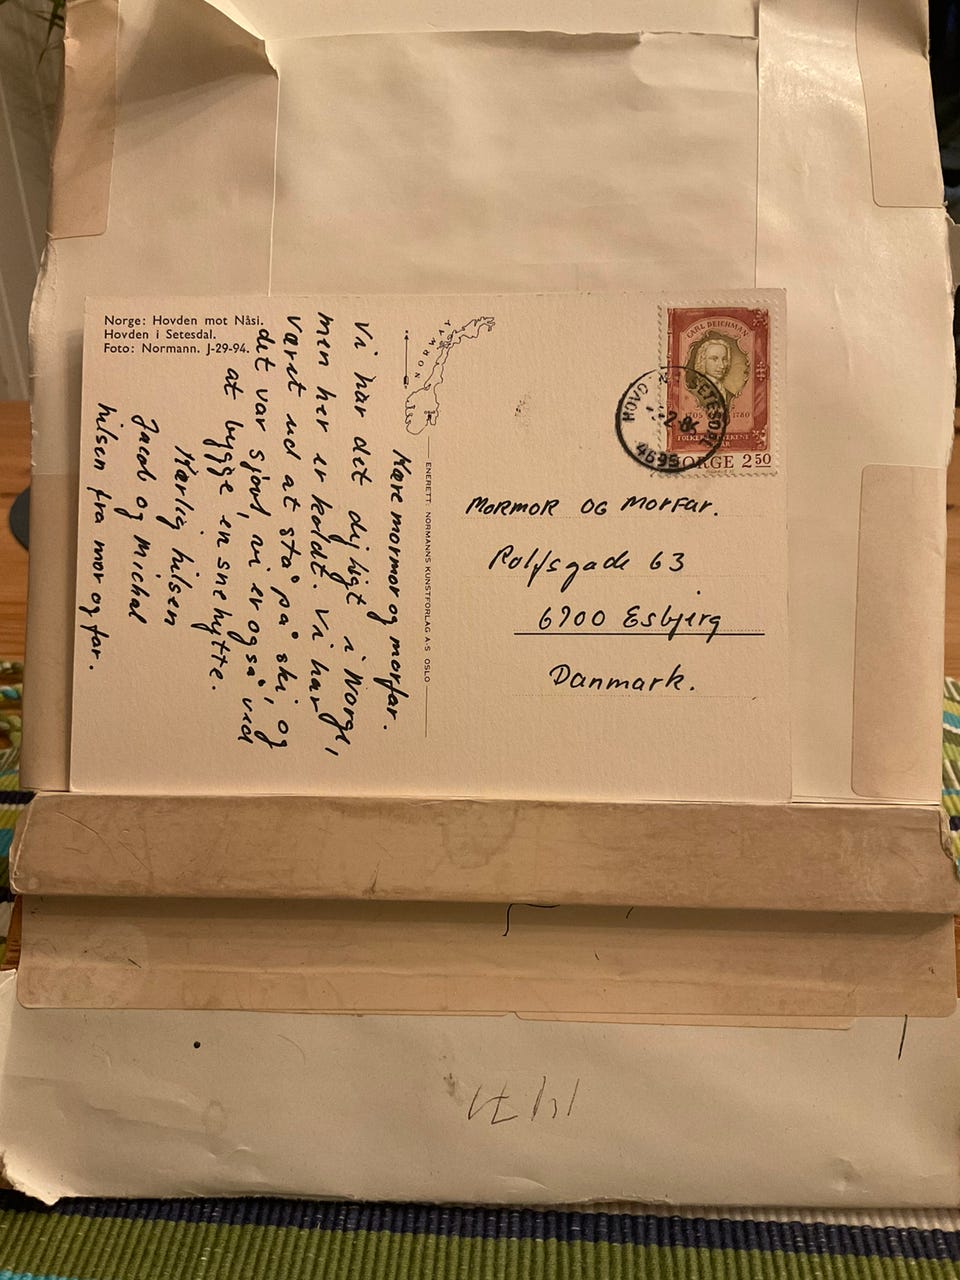 Norge: Hovden mot Nåsi.
Hovden i Setesdal.
Foto: Normann. J-29-94.
NORWAY
ENERETT: NORMANNS KUNSTFORLAG A·S OSLO
Kære mormor og morfar.
Vi har det dejligt i Norge,
men her er koldt. Vi har
været ud at stå på ski, og
det var sjovt, vi er også ved
at bygge en snehytte.
Kærlig hilsen
Jacob og Michal
hilsen fra mor og far.
CARL DEICHMAN
1705 1780
NORGE 2 50
4695
MORMOR OG MORFAR.
Rolfsgade 63
6700 Esbjerg
Danmark.